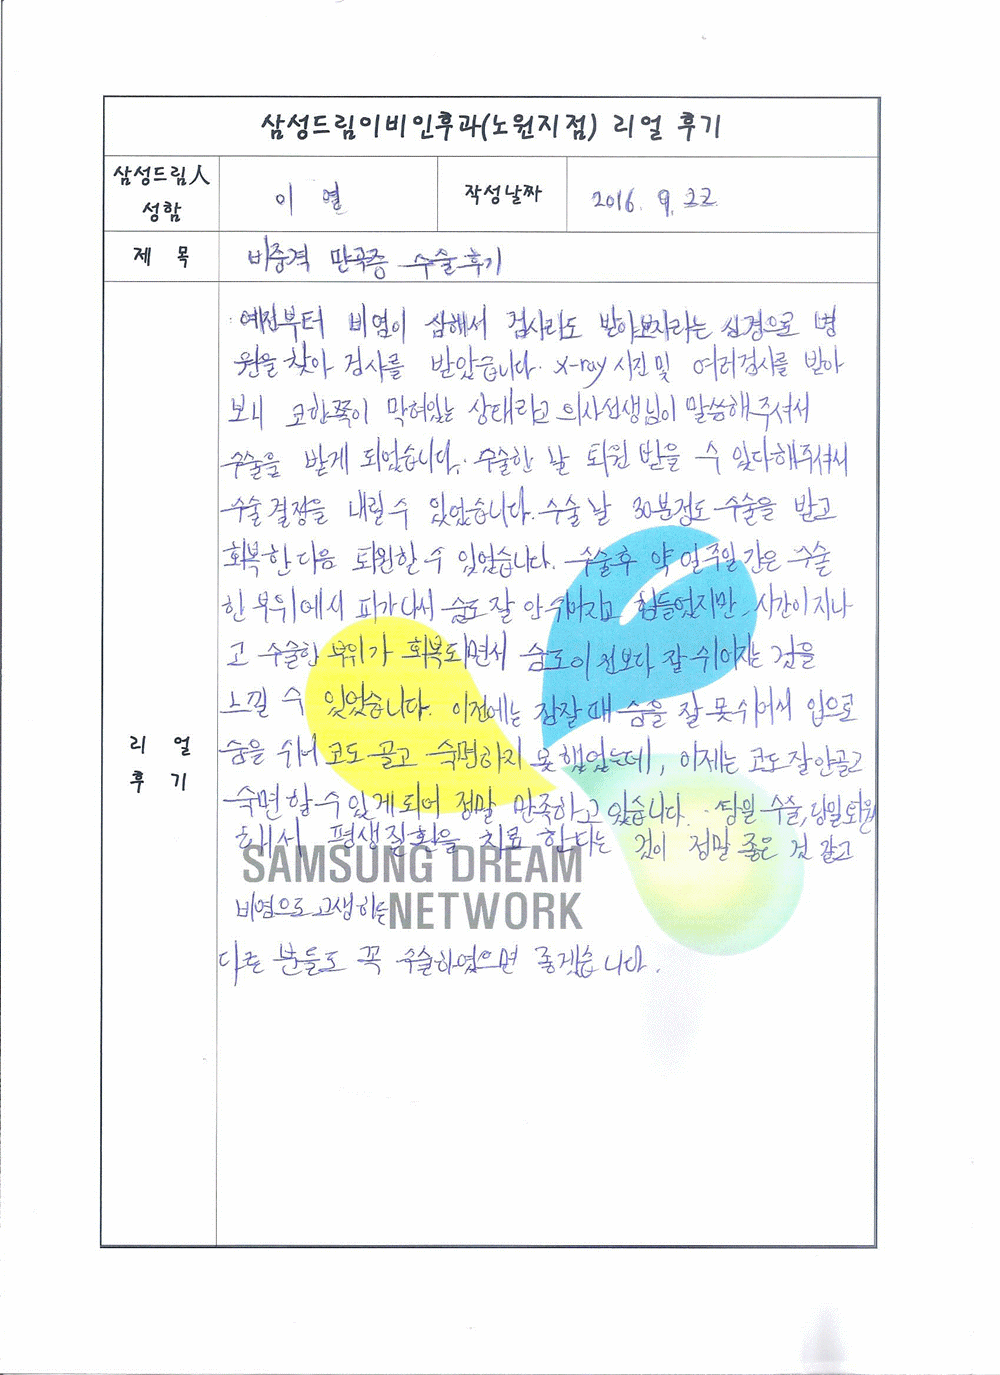 삼성드림이비인후과(노원지점) 리얼 후기
삼성드림人 성함
이 열
작성날짜
2016. 9. 22.
제 목
비중격 만곡증 수술후기
리 얼 후 기
예전부터 비염이 심해서 검사라도 받아보자라는 심경으로 병
원을 찾아 검사를 받았습니다. x-ray 사진 및 여러검사를 받아
보니 코한쪽이 막혀있는 상태라고 의사선생님이 말씀해주셔서
수술을 받게 되었습니다. 수술한 날 퇴원 받을 수 있다해주셔서
수술 결정을 내릴 수 있었습니다. 수술 날 30분정도 수술을 받고
회복한다음 퇴원할 수 있었습니다. 수술후 약 일주일 간은 수술
한 부위에서 피가 나서 숨도 잘 안 쉬어지고 힘들었지만, 시간이 지나
고 수술한 부위가 회복되면서 숨도이 전보다 잘 쉬어지는 것을
느낄 수 있었습니다. 이전에는 잠잘 때 숨을 잘 못쉬어서 입으로
숨을 쉬니 코도 골고 숙면하지 못 했었는데, 이제는 코도 잘 안골고
숙면 할 수 있게 되어 정말 만족하고 있습니다. 당일 수술, 당일 퇴원
해서 평생질환을 치료 한다는 것이 정말 좋은 것 같고
SAMSUNG DREAM
비염으로 고생하는
NETWORK
다른 분들도 꼭 수술하였으면 좋겠습니다.